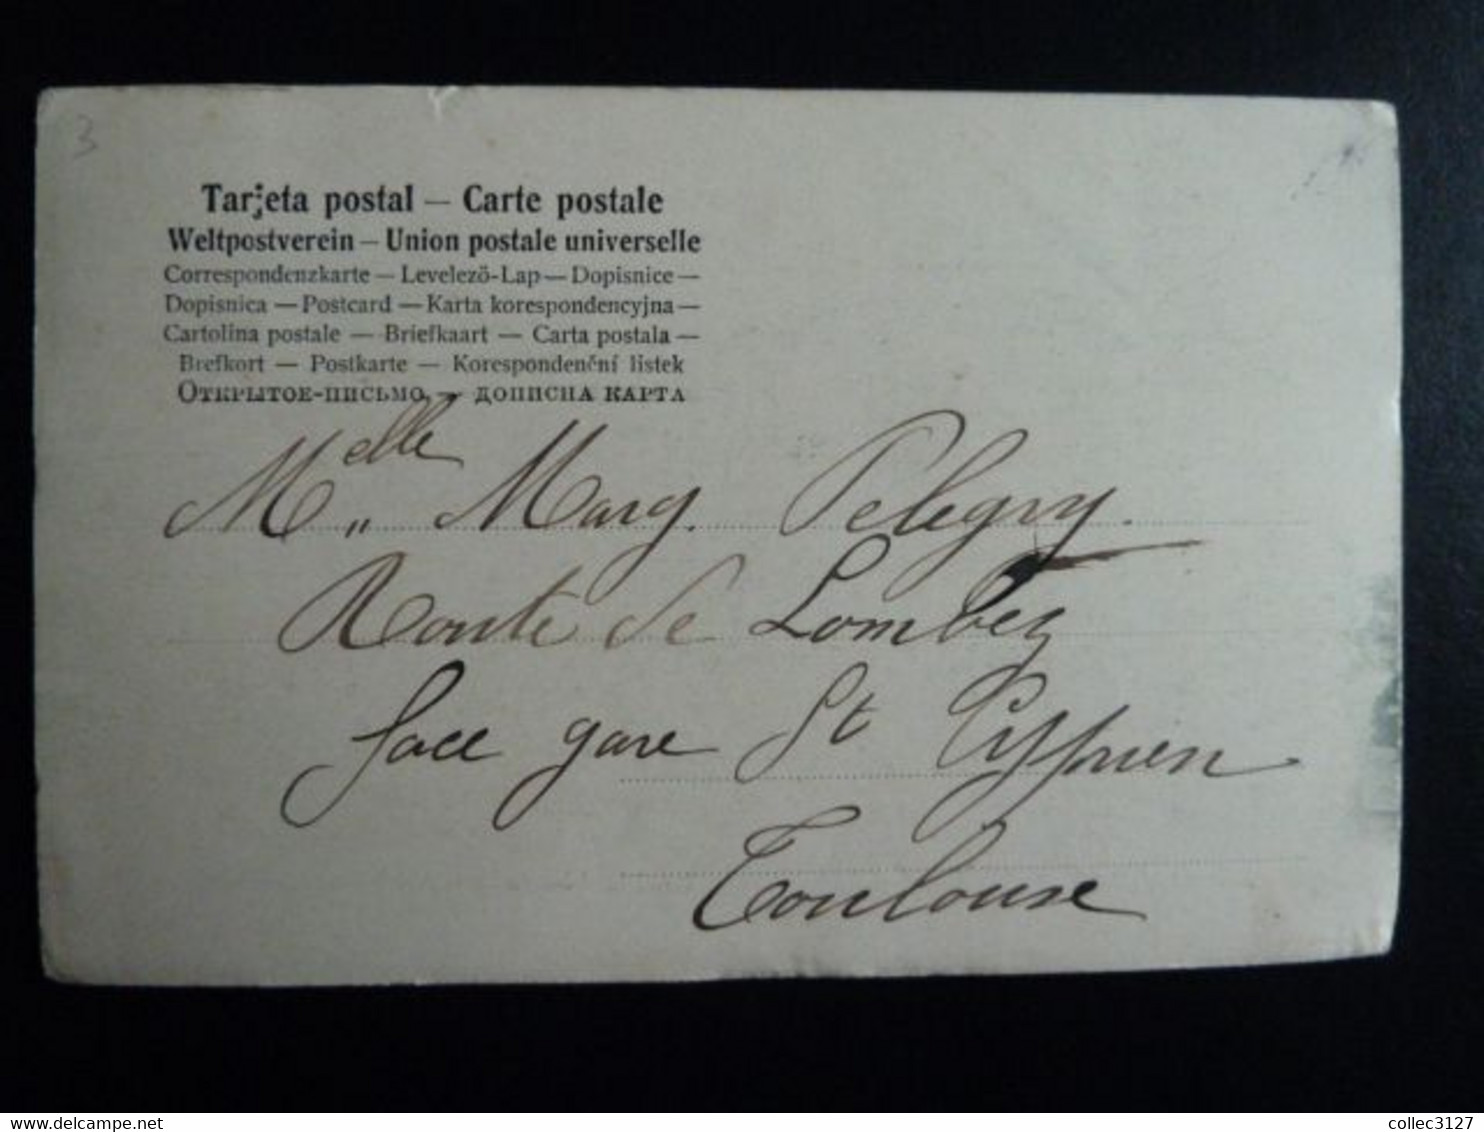 3
Tarjeta postal — Carte postale
Weltpostverein — Union postale universelle
Correspondenzkarte — Levelezö-Lap — Dopisnice —
Dopisnica — Postcard — Karta korespondencyjna —
Cartolina postale — Briefkaart — Carta postala —
Brefkort — Postkarte — Korespondenční listek
Открытое-письмо — дописна карта
Melle Marg. Pelegry.
Route de Lombez
face gare St Cyprien
Toulouse
collec3127